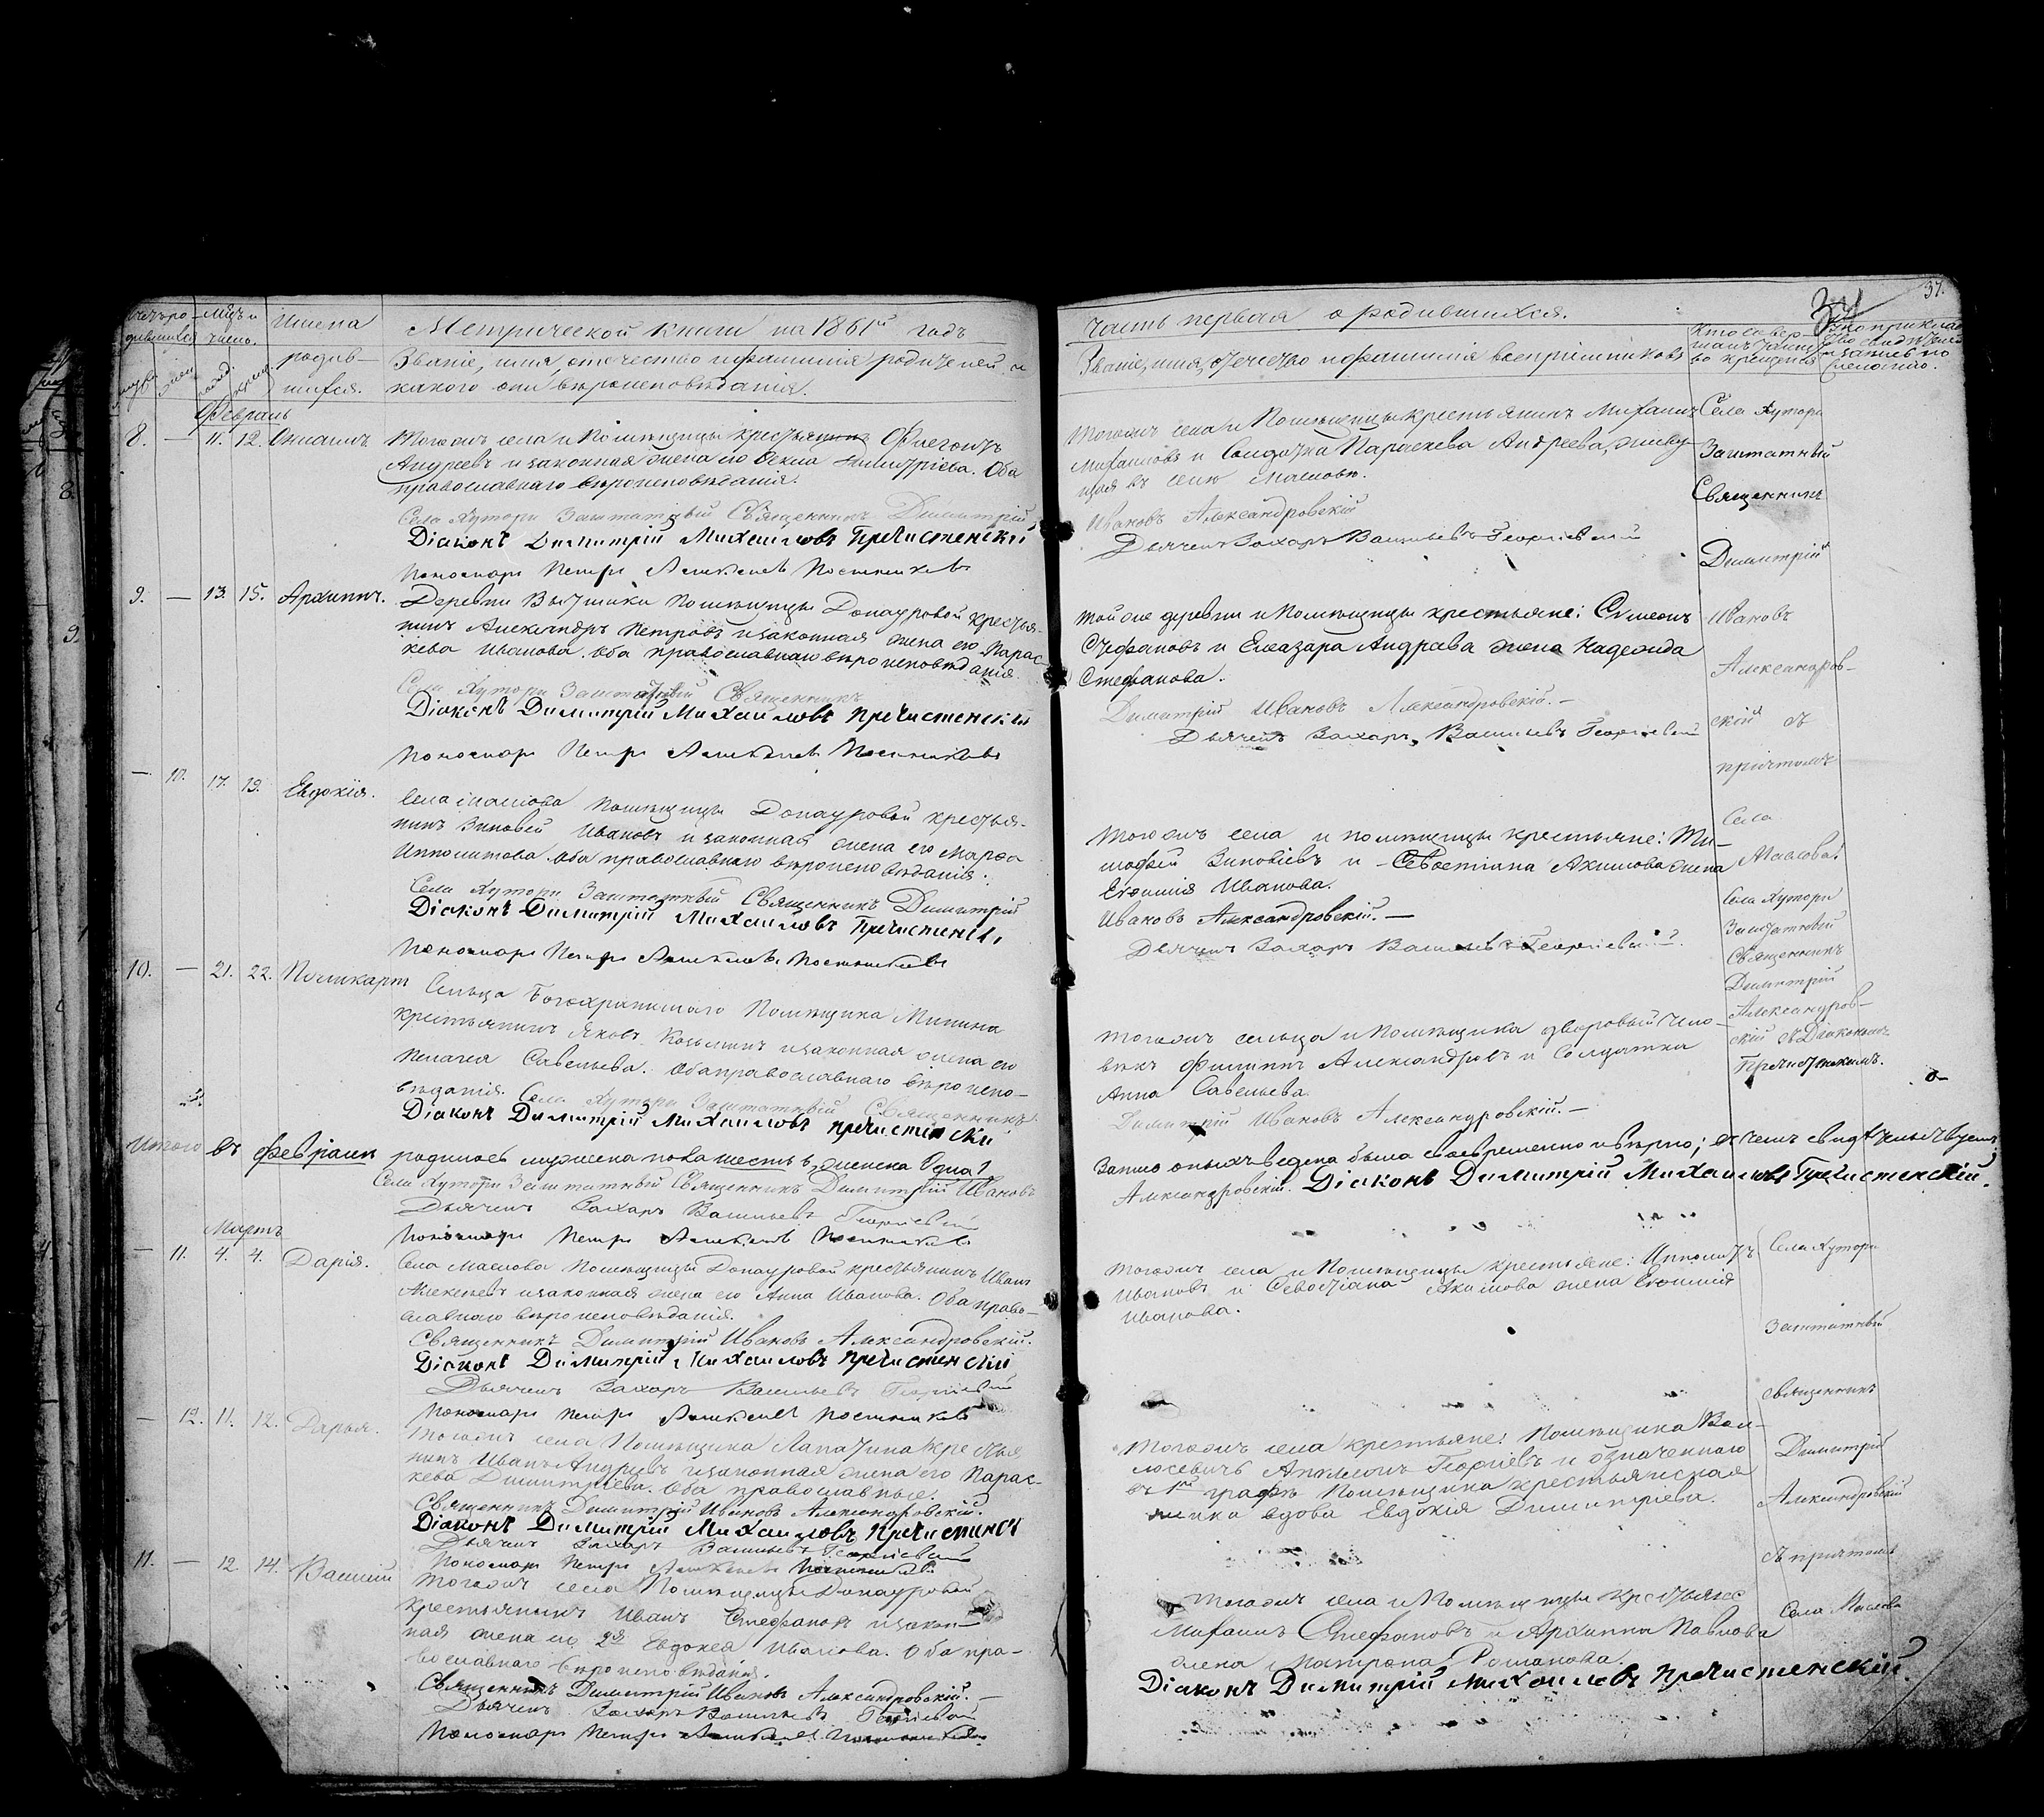 Метрической книги на 1861й годъ
Имена
родив-
шихся.
Званіе, имя, отечество и фамилія родителей, и
какого они вѣроисповѣданія.
Февраль
8. — 11. 12.
Тогожъ села и Помѣщицы крестьянинъ Флегонтъ
Андреевъ и законная жена его Ѳекла Димитріева. Оба
православнаго вѣроисповѣданія.
Села Хутори Заштатный Священникъ Димитрій
Діаконъ Димитрій Михаиловъ Пречистенскій
Пономарь Петръ
9. — 13. 15. Архиппъ.
Деревни Помѣщицы Донауровой крестья-
нинъ Александръ Петровъ и законная жена его Парас-
кева Иванова. Оба православнаго вѣроисповѣданія.
Села Хутори Заштатный Священникъ
Діаконъ Димитрій Михаиловъ Пречистенскій
Пономарь Петръ
— 10. 17. 19. Евдокія.
Села Маслова Помѣщицы Донауровой крестья-
нинъ Зиновей Ивановъ и законная жена его Марѳа
Ипполитова. Оба православнаго вѣроисповѣданія.
Села Хутори Заштатный Священникъ Димитрій
Діаконъ Димитрій Михаиловъ Пречистенскій
Пономарь Петръ
10. — 21. 22. Поликарпъ
Сельца Богохранимаго Помѣщика Минина
крестьянинъ Яковъ Козьминъ и законная жена его
Пелагея Савельева. Оба православнаго вѣроиспо-
вѣданія. Села Хутори Заштатный Священникъ
Діаконъ Димитрій Михаиловъ Пречистенскій
Итого въ февралѣ родилось мужеска пола шесть, женска одна
Села Хутори Заштатный Священникъ Димитрій Ивановъ
Дьячекъ Захаръ Васильевъ Георгіевскій
Пономарь Петръ
Мартъ
— 11. 4. 4. Дарія.
Села Маслова Помѣщицы Донауровой крестьянинъ Иванъ
Алексѣевъ и законная жена его Анна Иванова. Оба право-
славнаго вѣроисповѣданія.
Священникъ Димитрій Ивановъ Александровскій.
Діаконъ Димитрій Михаиловъ Пречистенскій
Дьячекъ Захаръ Васильевъ Георгіевскій
Пономарь Петръ
— 12. 11. 12. Дарья.
Тогожъ села Помѣщика Лапатина крестья-
нинъ Иванъ Андреевъ и законная жена его Парас-
кева Димитріева. Оба православные.
Священникъ Димитрій Ивановъ Александровскій.
Діаконъ Димитрій Михаиловъ Пречистенскій
Дьячекъ Захаръ Васильевъ Георгіевскій
Пономарь Петръ
11. — 12. 14. Василій
Тогожъ села Помѣщицы Донауровой
крестьянинъ Иванъ Стефановъ и закон-
ная жена его 2я Евдокея Иванова. Оба пра-
вославнаго вѣроисповѣданія.
Священникъ Димитрій Ивановъ Александровскій. —
Дьячекъ Захаръ Васильевъ Георгіевскій
Пономарь Петръ
37.
часть первая о родившихся.
Званіе, имя, отечество и фамилія воспріемниковъ
Тогожъ села и Помѣщицы крестьянинъ Михаилъ
Михаиловъ и Солдатка Параскева Андреева, живу-
щая въ селѣ Масловѣ.
Ивановъ Александровскій
Дьячекъ Захаръ Васильевъ Георгіевскій
Села Хутори
Заштатный
Священникъ
Димитрій
Ивановъ
Александров-
скій съ
причтомъ
Той же деревни и Помѣщицы крестьяне: Сѵмеонъ
Стефановъ и Елеазара Андреева жена Надежда
Стефанова.
Димитрій Ивановъ Александровскій. —
Дьячекъ Захаръ Васильевъ Георгіевскій
Тогожъ села и помѣщицы крестьяне: Ти-
мофей Зиновіевъ и Севостіана Акимова жена
Евѳимія Иванова.
Ивановъ Александровскій. —
Дьячекъ Захаръ Васильевъ Георгіевскій.
Села
Маслова.
Села Хутори
Заштатный
Священникъ
Димитрій
Александров-
скій съ Діакономъ
Пречистенскимъ.
Тогожъ сельца и Помѣщика дворовый чело-
вѣкъ Филиппъ Александровъ и Солдатка
Анна Савельева.
Димитрій Ивановъ Александровскій. —
Запись оныхъ ведена была своевременно и вѣрно; въ чемъ свидѣтельствуемъ
Александровскій. Діаконъ Димитрій Михаиловъ Пречистенскій.
Тогожъ села и Помѣщицы крестьяне: Ипполитъ
Ивановъ и Севостіана Акимова жена Евѳимія
Иванова.
Села Хутори
Заштатный
священникъ
Димитрій
Александровскій
съ причтомъ
Села Маслова
Тогожъ села крестьяне: Помѣщика
Георгіевъ и означеннаго
въ 1й графѣ Помѣщика крестьянская
вдова Евдокія Димитріева.
Тогожъ села и Помѣщицы крестьяне
Михаилъ Стефановъ и Архиппа Павлова
жена Матрона Романова.
Діаконъ Димитрій Михаиловъ Пречистенскій.